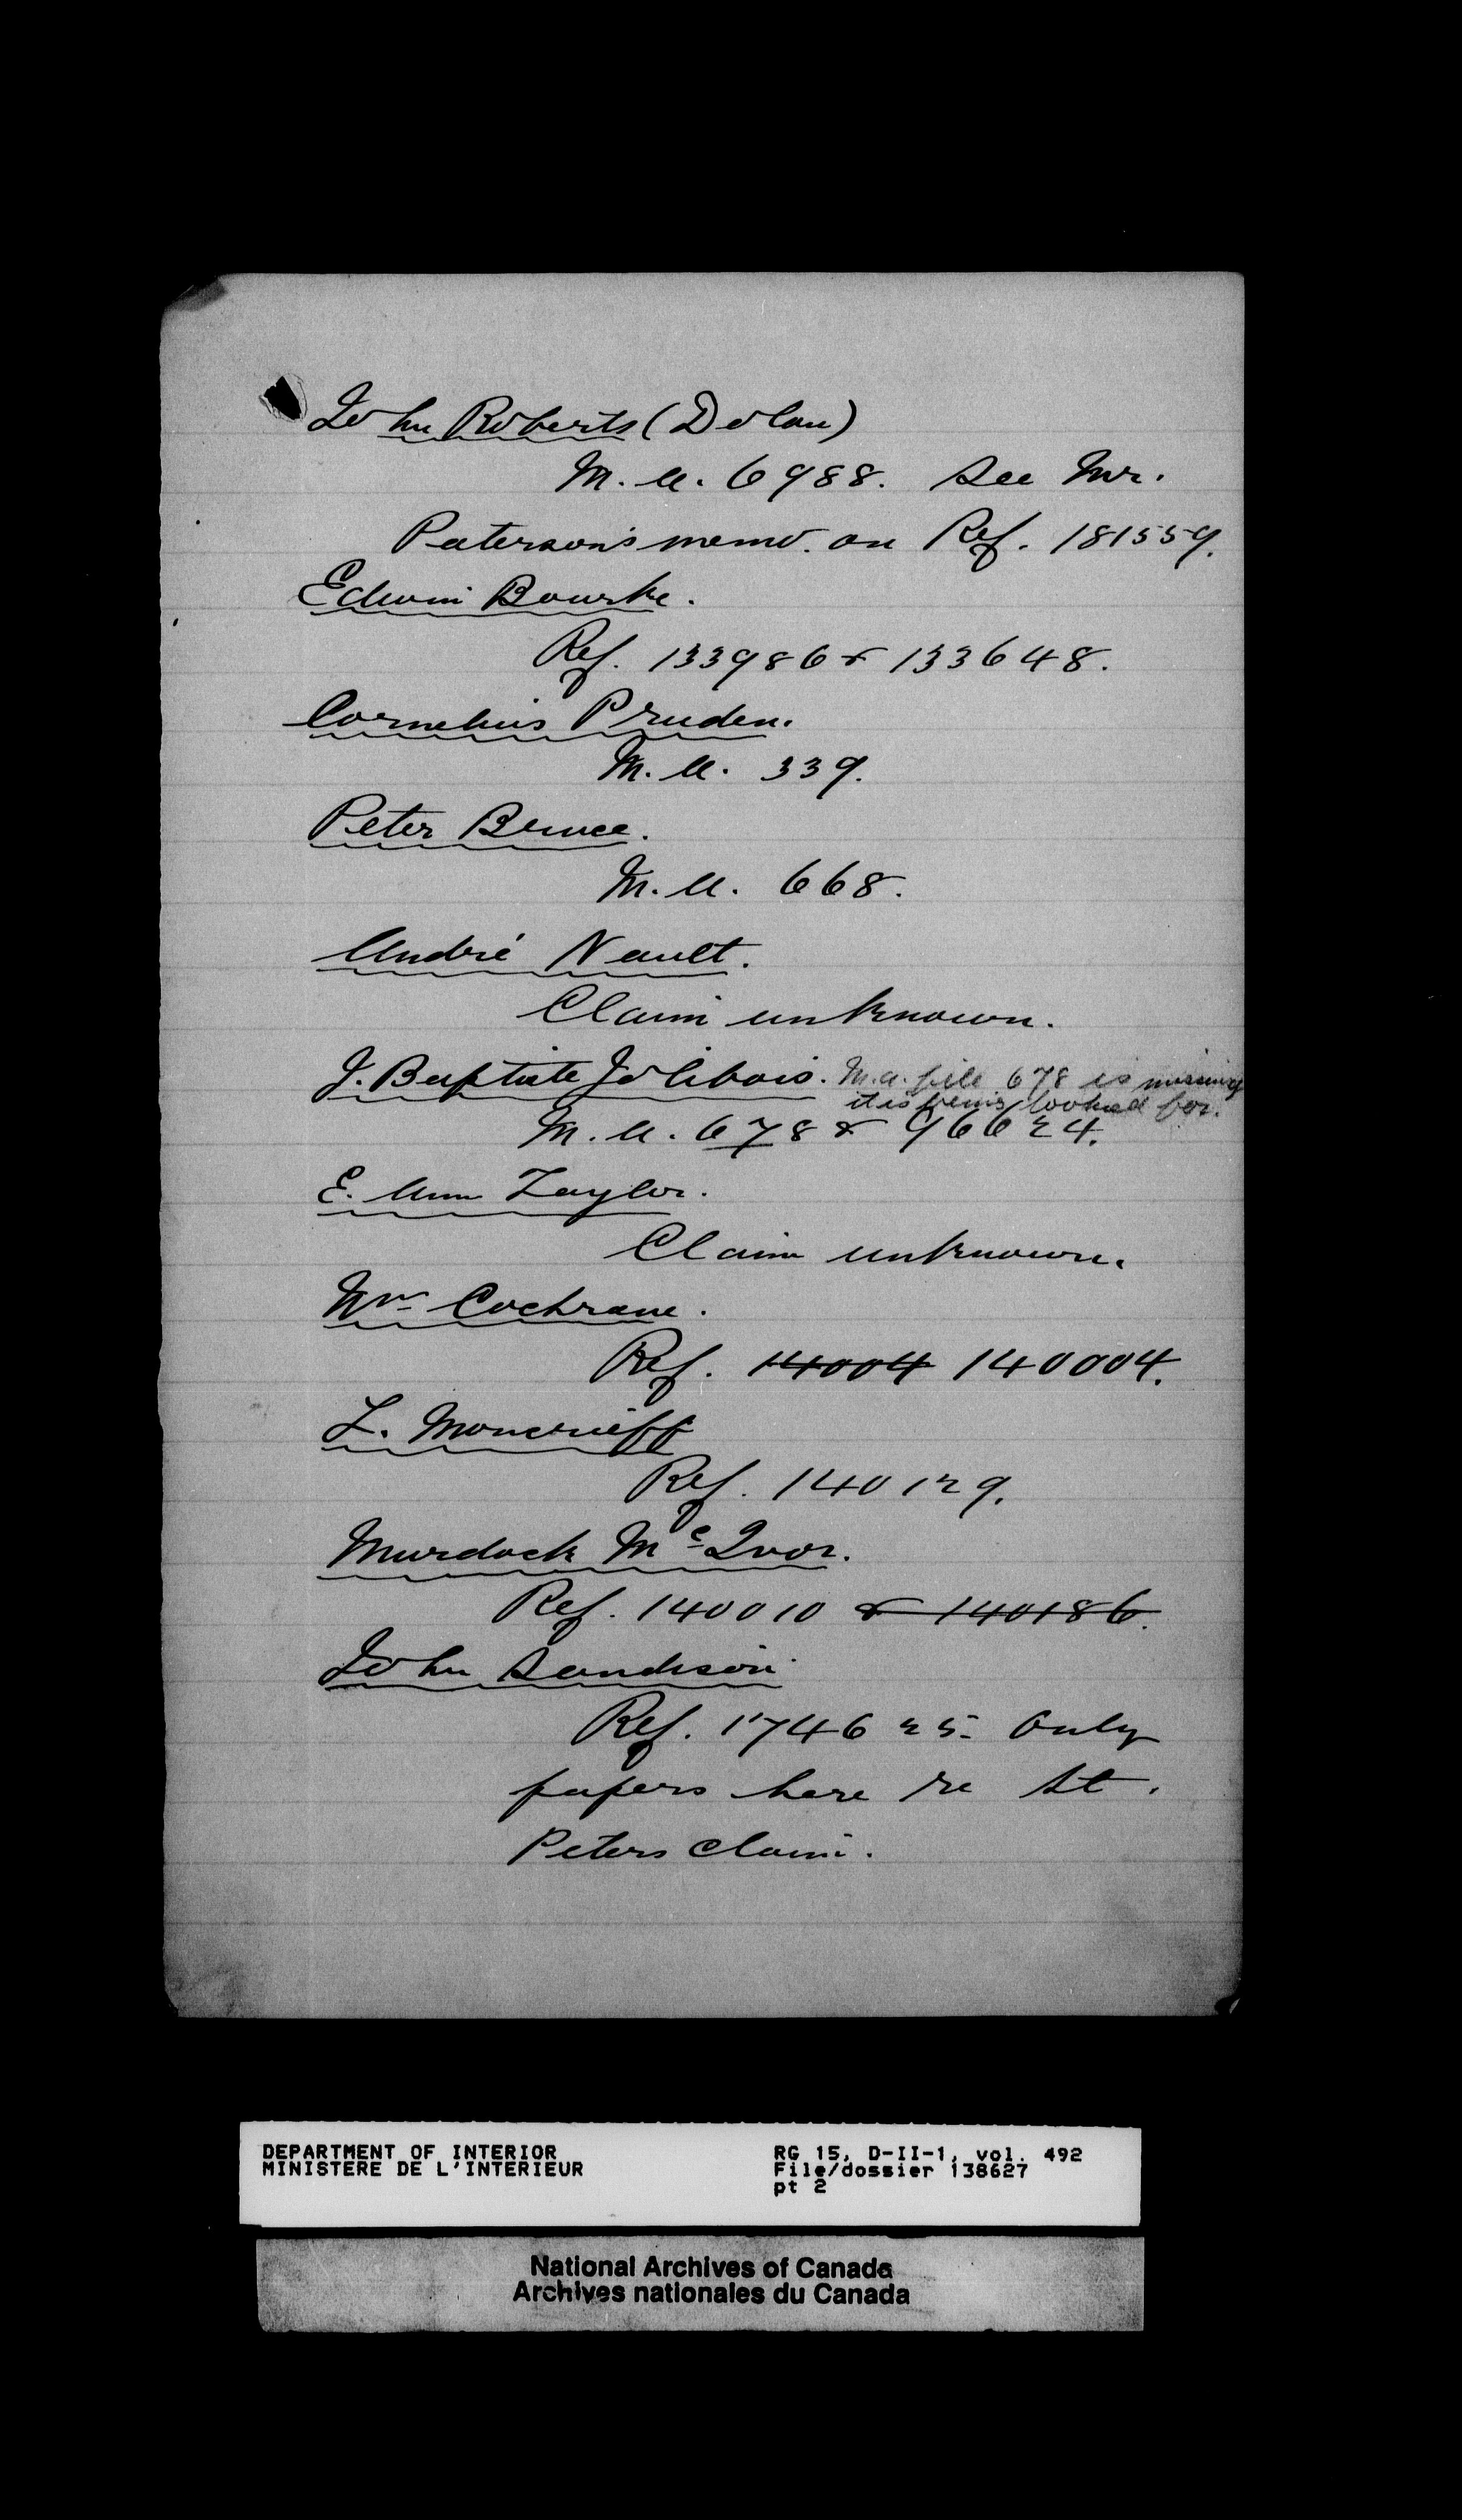 John Roberts (Dolan)
M.A. 6988. See Mr.
Paterson's memo. on Ref. 181559.
Edwin Bourke.
Ref. 133986 & 133648.
Cornelius Pruden.
M.A. 339.
Peter Bruce.
M.A. 668.
André Nault.
Claim unknown.
J. Baptiste Jolibois. M.A. file 678 is missing
it is being looked for.
M.A. 678 & 96624.
E. Ann Taylor.
Claim unknown.
Wm Cochrane.
Ref. 14004 140004.
L. Moncrieff
Ref. 140129.
Murdock Mc Ivor.
Ref. 140010 & 140186.
John Sandison
Ref. 174625. Only
papers here re St.
Peters claim.
DEPARTMENT OF INTERIOR RG 15, D-II-1, vol. 492
MINISTERE DE L'INTERIEUR File/dossier 138627
pt 2
National Archives of Canada
Archives nationales du Canada